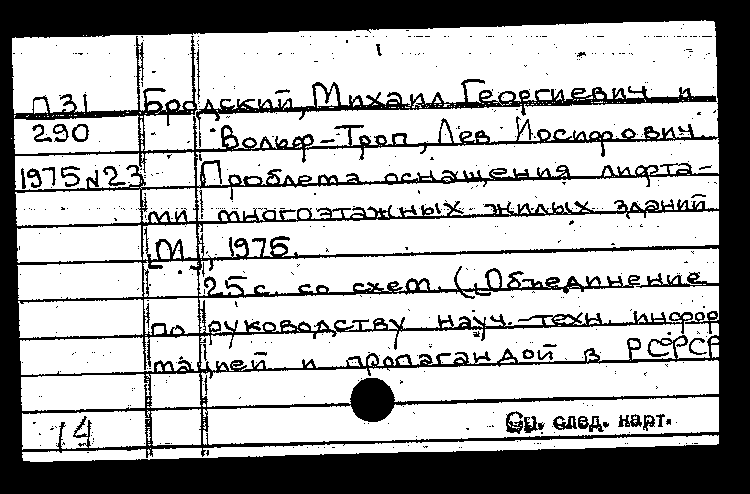 1
П31 Бродский, Михаил Георгиевич и
290 Вольф-Троп, Лев Иосифович.
1975 №23 Проблема оснащения лифта-
ми многоэтажных жилых зданий.
[М.], 1975.
25 с. со схем. („Объединение
по руководству науч.-техн. инфор
мацией и пропагандой в РСФСР
14 См. след. карт.